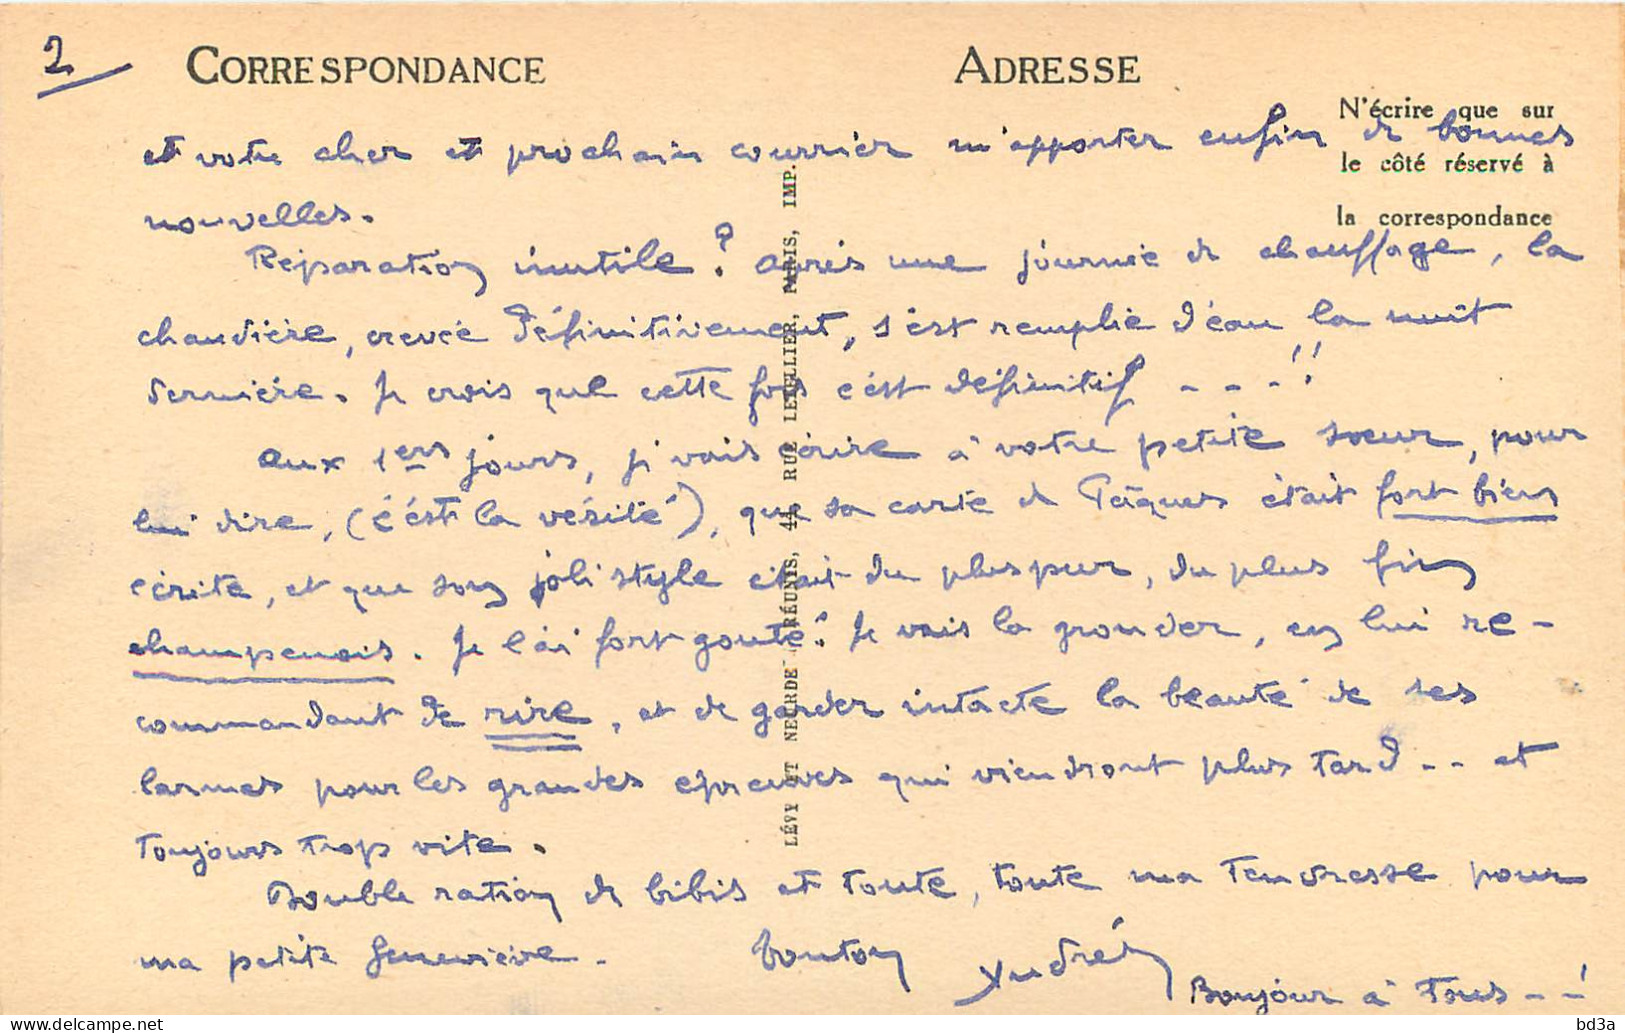 2
CORRESPONDANCE
ADRESSE
N'écrire que sur
le côté réservé à
la correspondance
et votre cher et prochain courrier m'apporter enfin de bonnes
nouvelles.
Réparation inutile ? après une journée de chauffage, la
chaudière, crevée définitivement, s'est remplie d'eau la nuit
dernière. Je crois que cette fois c'est définitif - - - !!
Aux 1ers jours, je vais écrire à votre petite soeur, pour
lui dire, (c'est la vérité), que sa carte de Pâques était fort bien
écrite, et que son joli style était du plus pur, du plus fin
champenois. Je l'ai fort gouté ! Je vais la gronder, en lui re-
commandant de rire, et de garder intacte la beauté de ses
larmes pour les grandes épreuves qui viendront plus tard -- et
toujours trop vite.
Double ration de bibis et toute, toute ma tendresse pour
ma petite Geneviève -
tonton André
Bonjour à Tous -- !
LÉVY ET NEURDEIN RÉUNIS, 44, RUE LETELLIER, PARIS, IMP.
bd3a